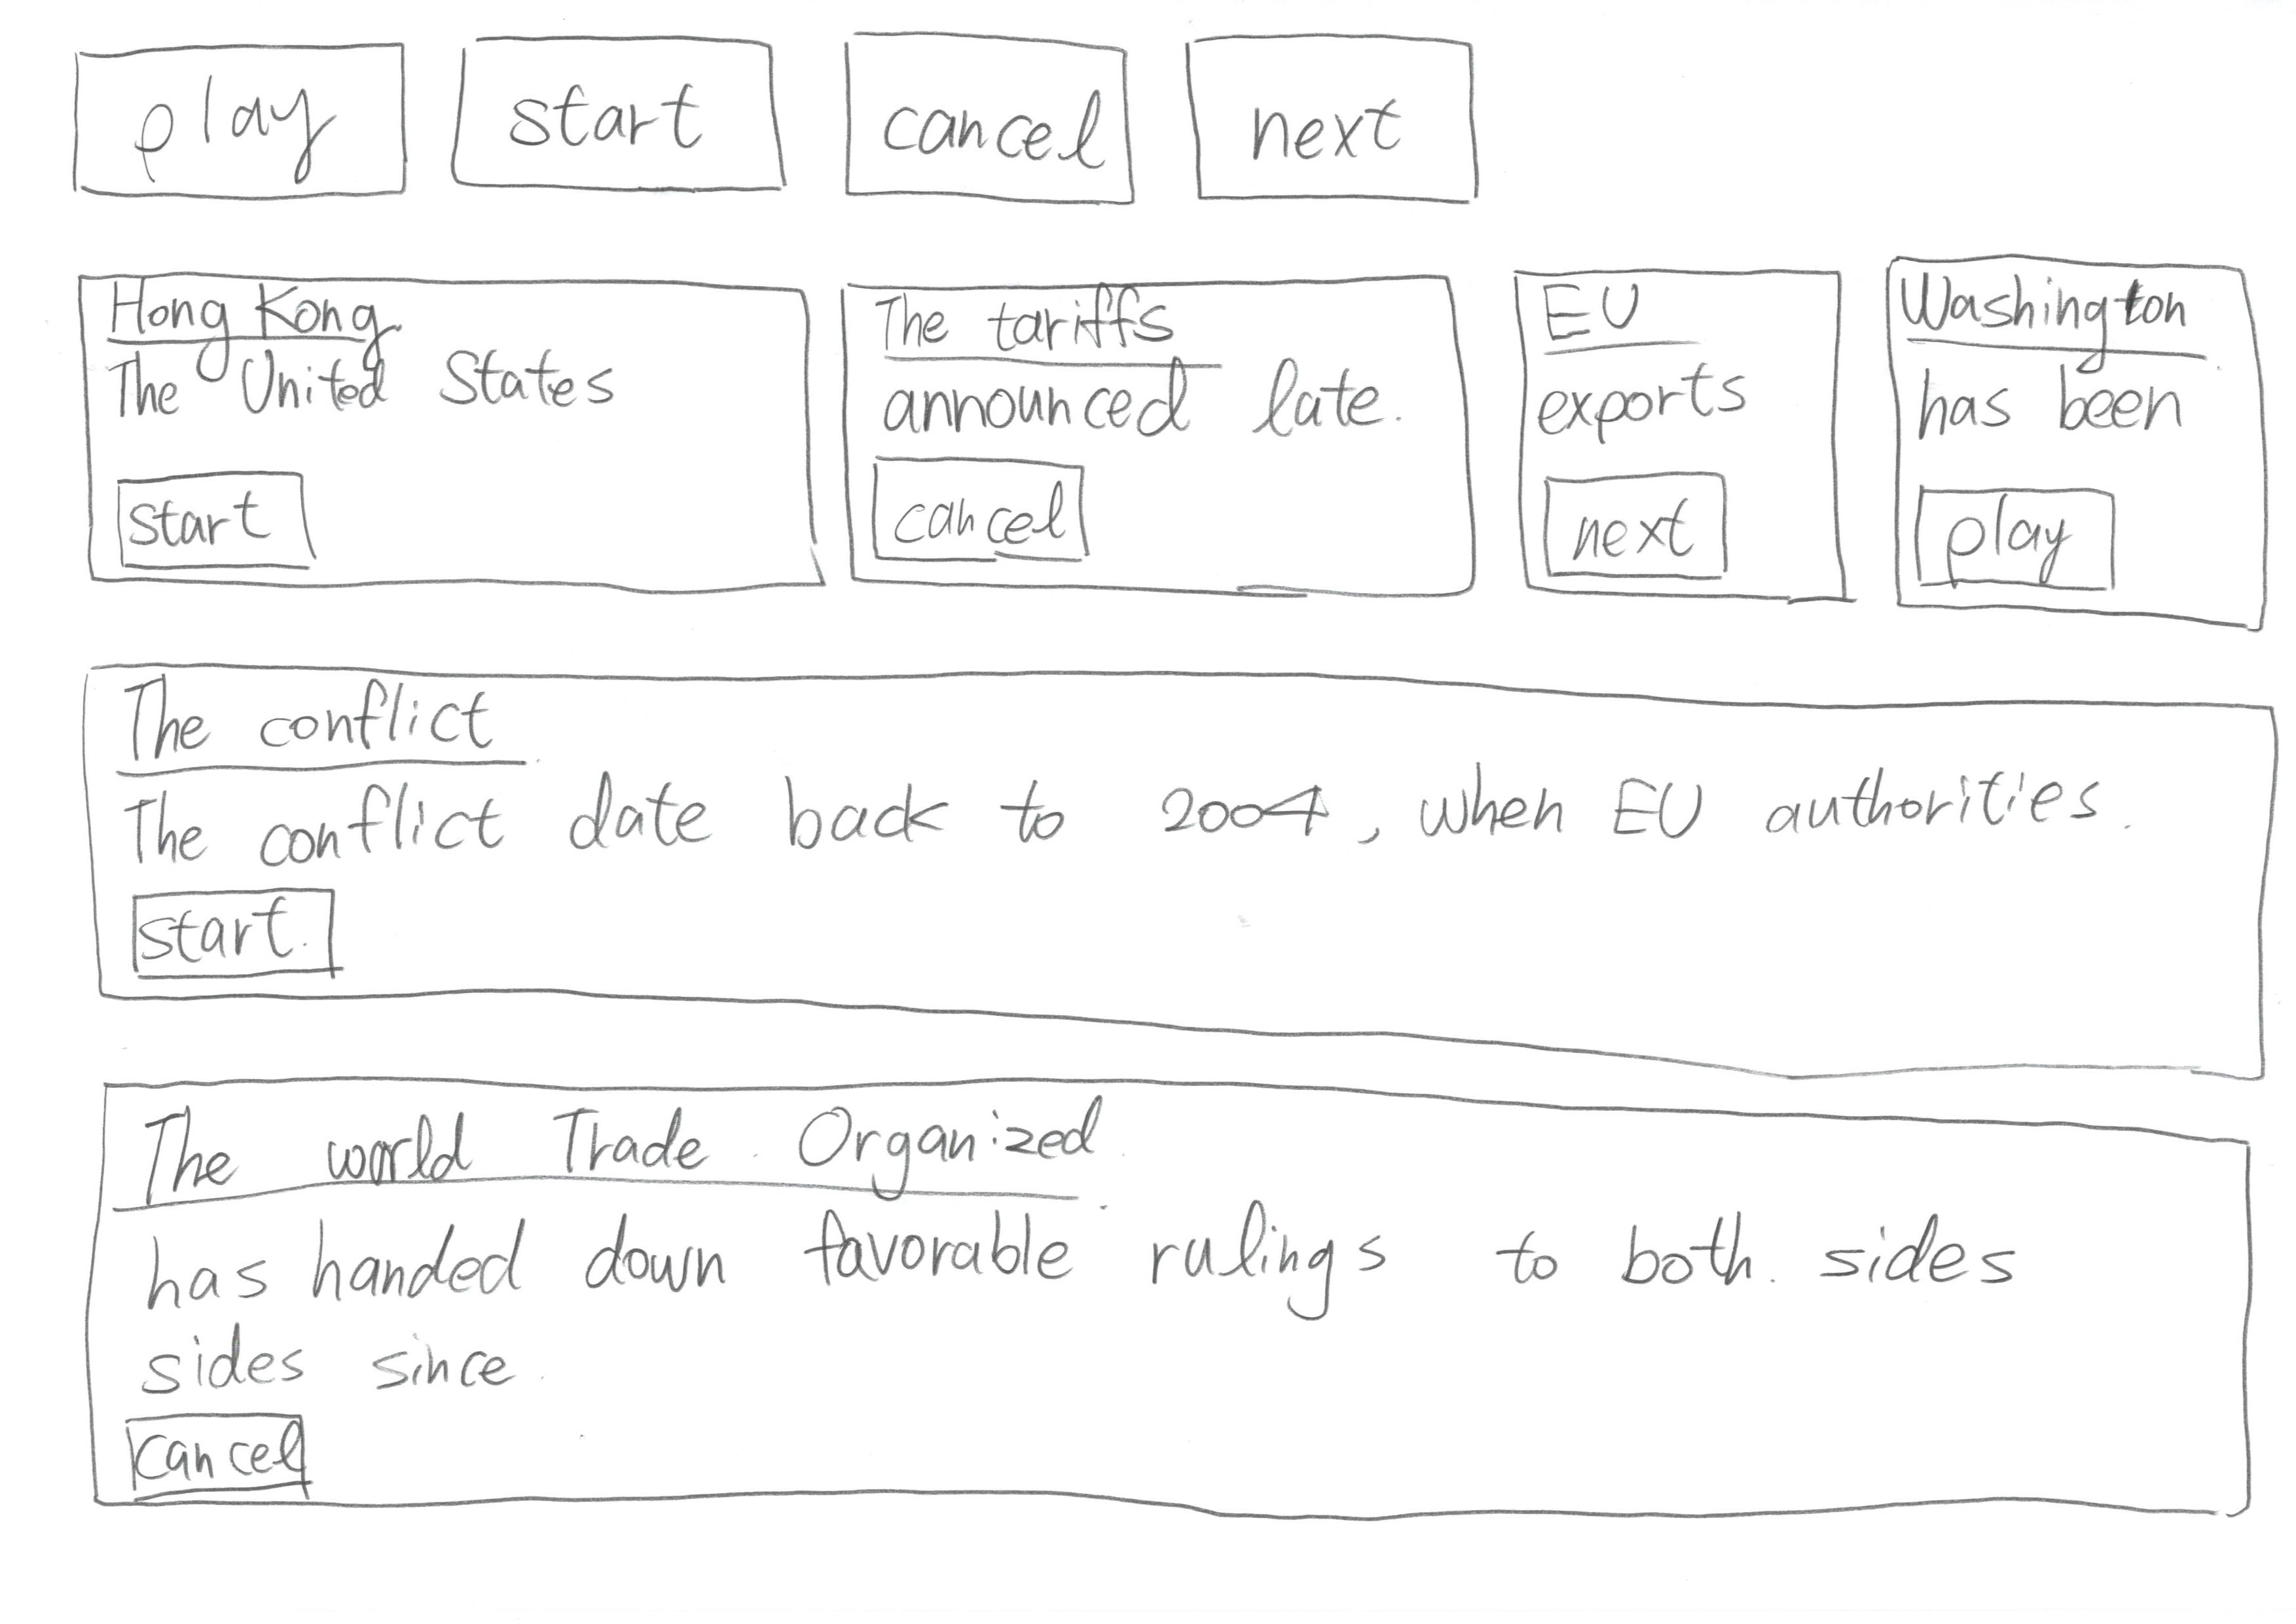 play start cancel next
Hong Kong
The United States
start
The tariffs
announced late.
cancel
EU
exports
next
Washington
has been
play
The conflict
The conflict date back to 2004, when EU authorities.
start
The world Trade Organized
has handed down favorable rulings to both sides
sides since
cancel